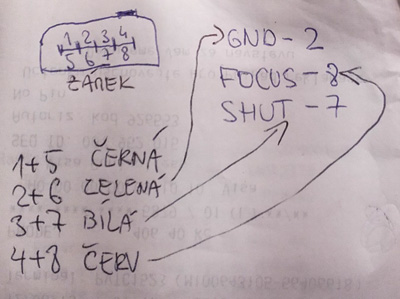 1 2 3 4
5 6 7 8
ZÁŘEK
GND - 2
FOCUS - 8
SHUT - 7
1+5 ČERNÁ
2+6 ZELENÁ
3+7 BÍLÁ
4+8 ČERV